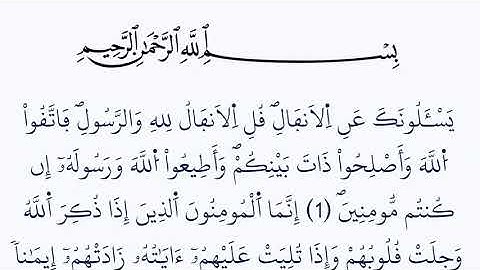 بِسْمِ اِللَّهِ اِلرَّحْمَٰنِ اِلرَّحِيمِ
يَسْـَٔلُونَكَ عَنِ اِلَانفَالِۖ قُلِ اِلَانفَالُ لِلهِ وَالرَّسُولِۖ فَاتَّقُواْ
اُللَّهَ وَأَصْلِحُواْ ذَاتَ بَيْنِكُمْۖ وَأَطِيعُواْ اُللَّهَ وَرَسُولَهُۥٓ إِن
كُنتُم مُّومِنِينَۖ (1) إِنَّمَا اَلْمُومِنُونَ اَلذِينَ إِذَا ذُكِرَ اَللَّهُ
وَجِلَتْ قُلُوبُهُمْ وَإِذَا تُلِيَتْ عَلَيْهِمُۥٓ ءَايَٰتُهُۥ زَادَتْهُمُۥٓ إِيمَٰناٗ